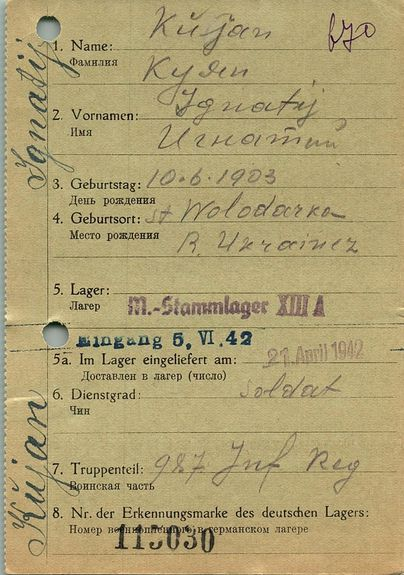 Kujan
1. Name:
Фамилия
Куян
Ignatij
2. Vornamen:
Имя
Игнатий
3. Geburtstag: 10.6.1903
День рождения
4. Geburtsort: st Wolodarka
Место рождения
R. Ukrainez
5. Lager:
Лагер
M.-Stammlager XIII A
Eingang 5. VI. 42
5a. Im Lager eingeliefert am: 21. April 1942
Доставлен в лагер (число)
6. Dienstgrad: Soldat
Чин
7. Truppenteil: 987 Inf Reg
Воинская часть
8. Nr. der Erkennungsmarke des deutschen Lagers:
Номер в германском лагере
115030
Ignatij
Kujan